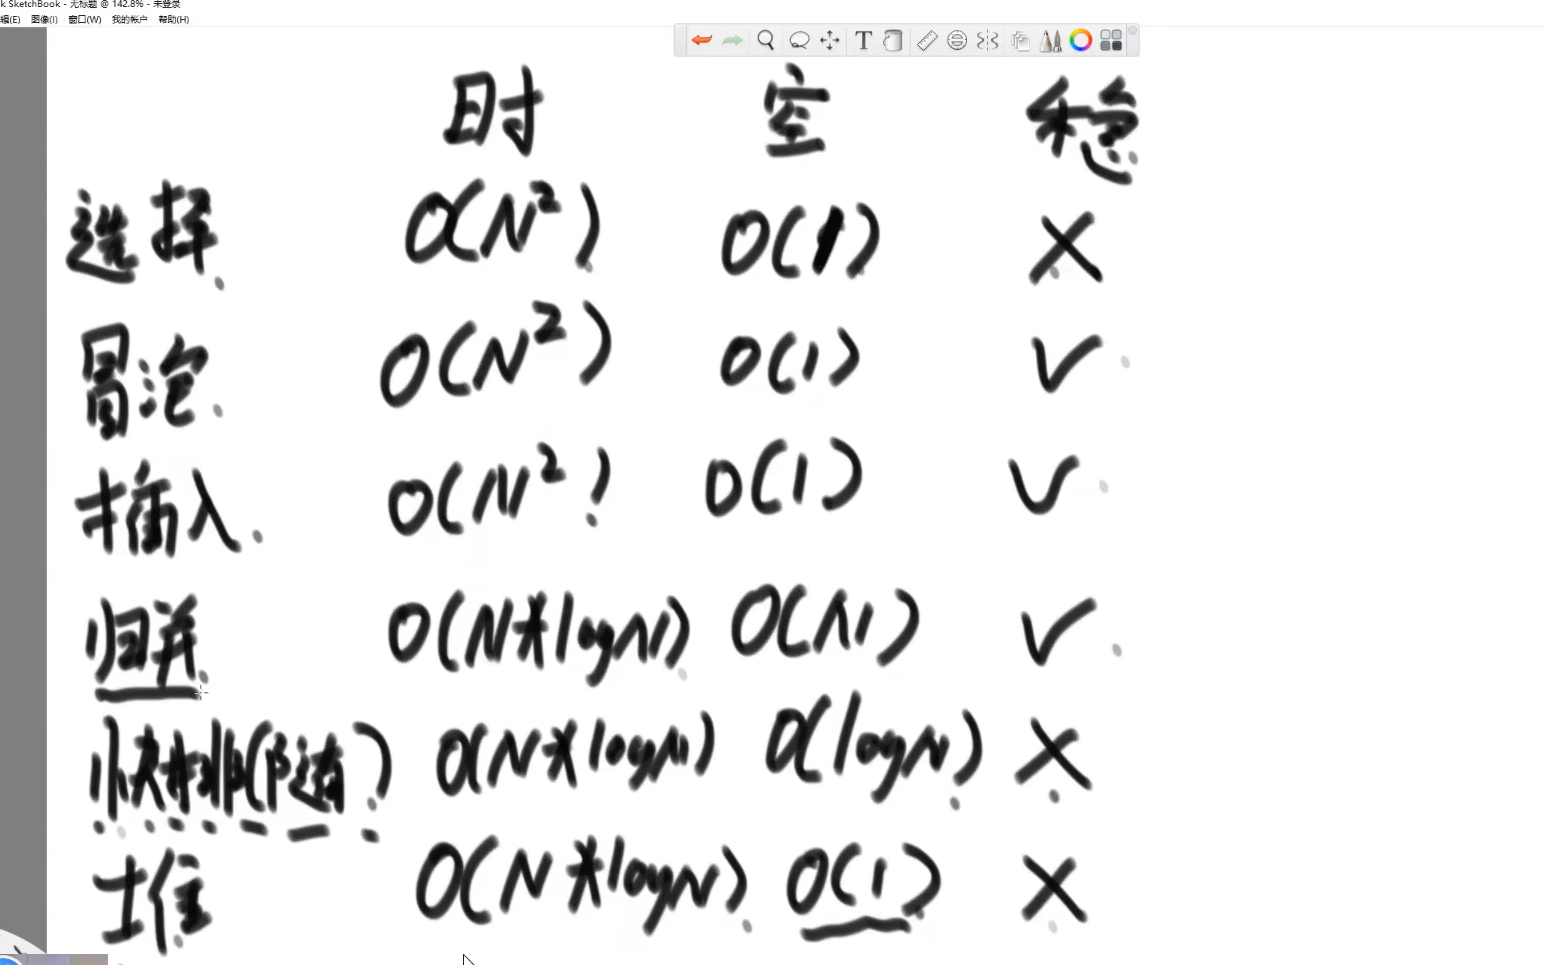 k SketchBook - 无标题 @ 142.8% - 未登录
辑(E) 图像(I) 窗口(W) 我的帐户 帮助(H)
时 空 稳
选择 O(N²) O(1) X
冒泡 O(N²) O(1) √
插入 O(N²) O(1) √
归并 O(N*logN) O(N) √
快排(随) O(N*logN) O(logN) X
堆 O(N*logN) O(1) X